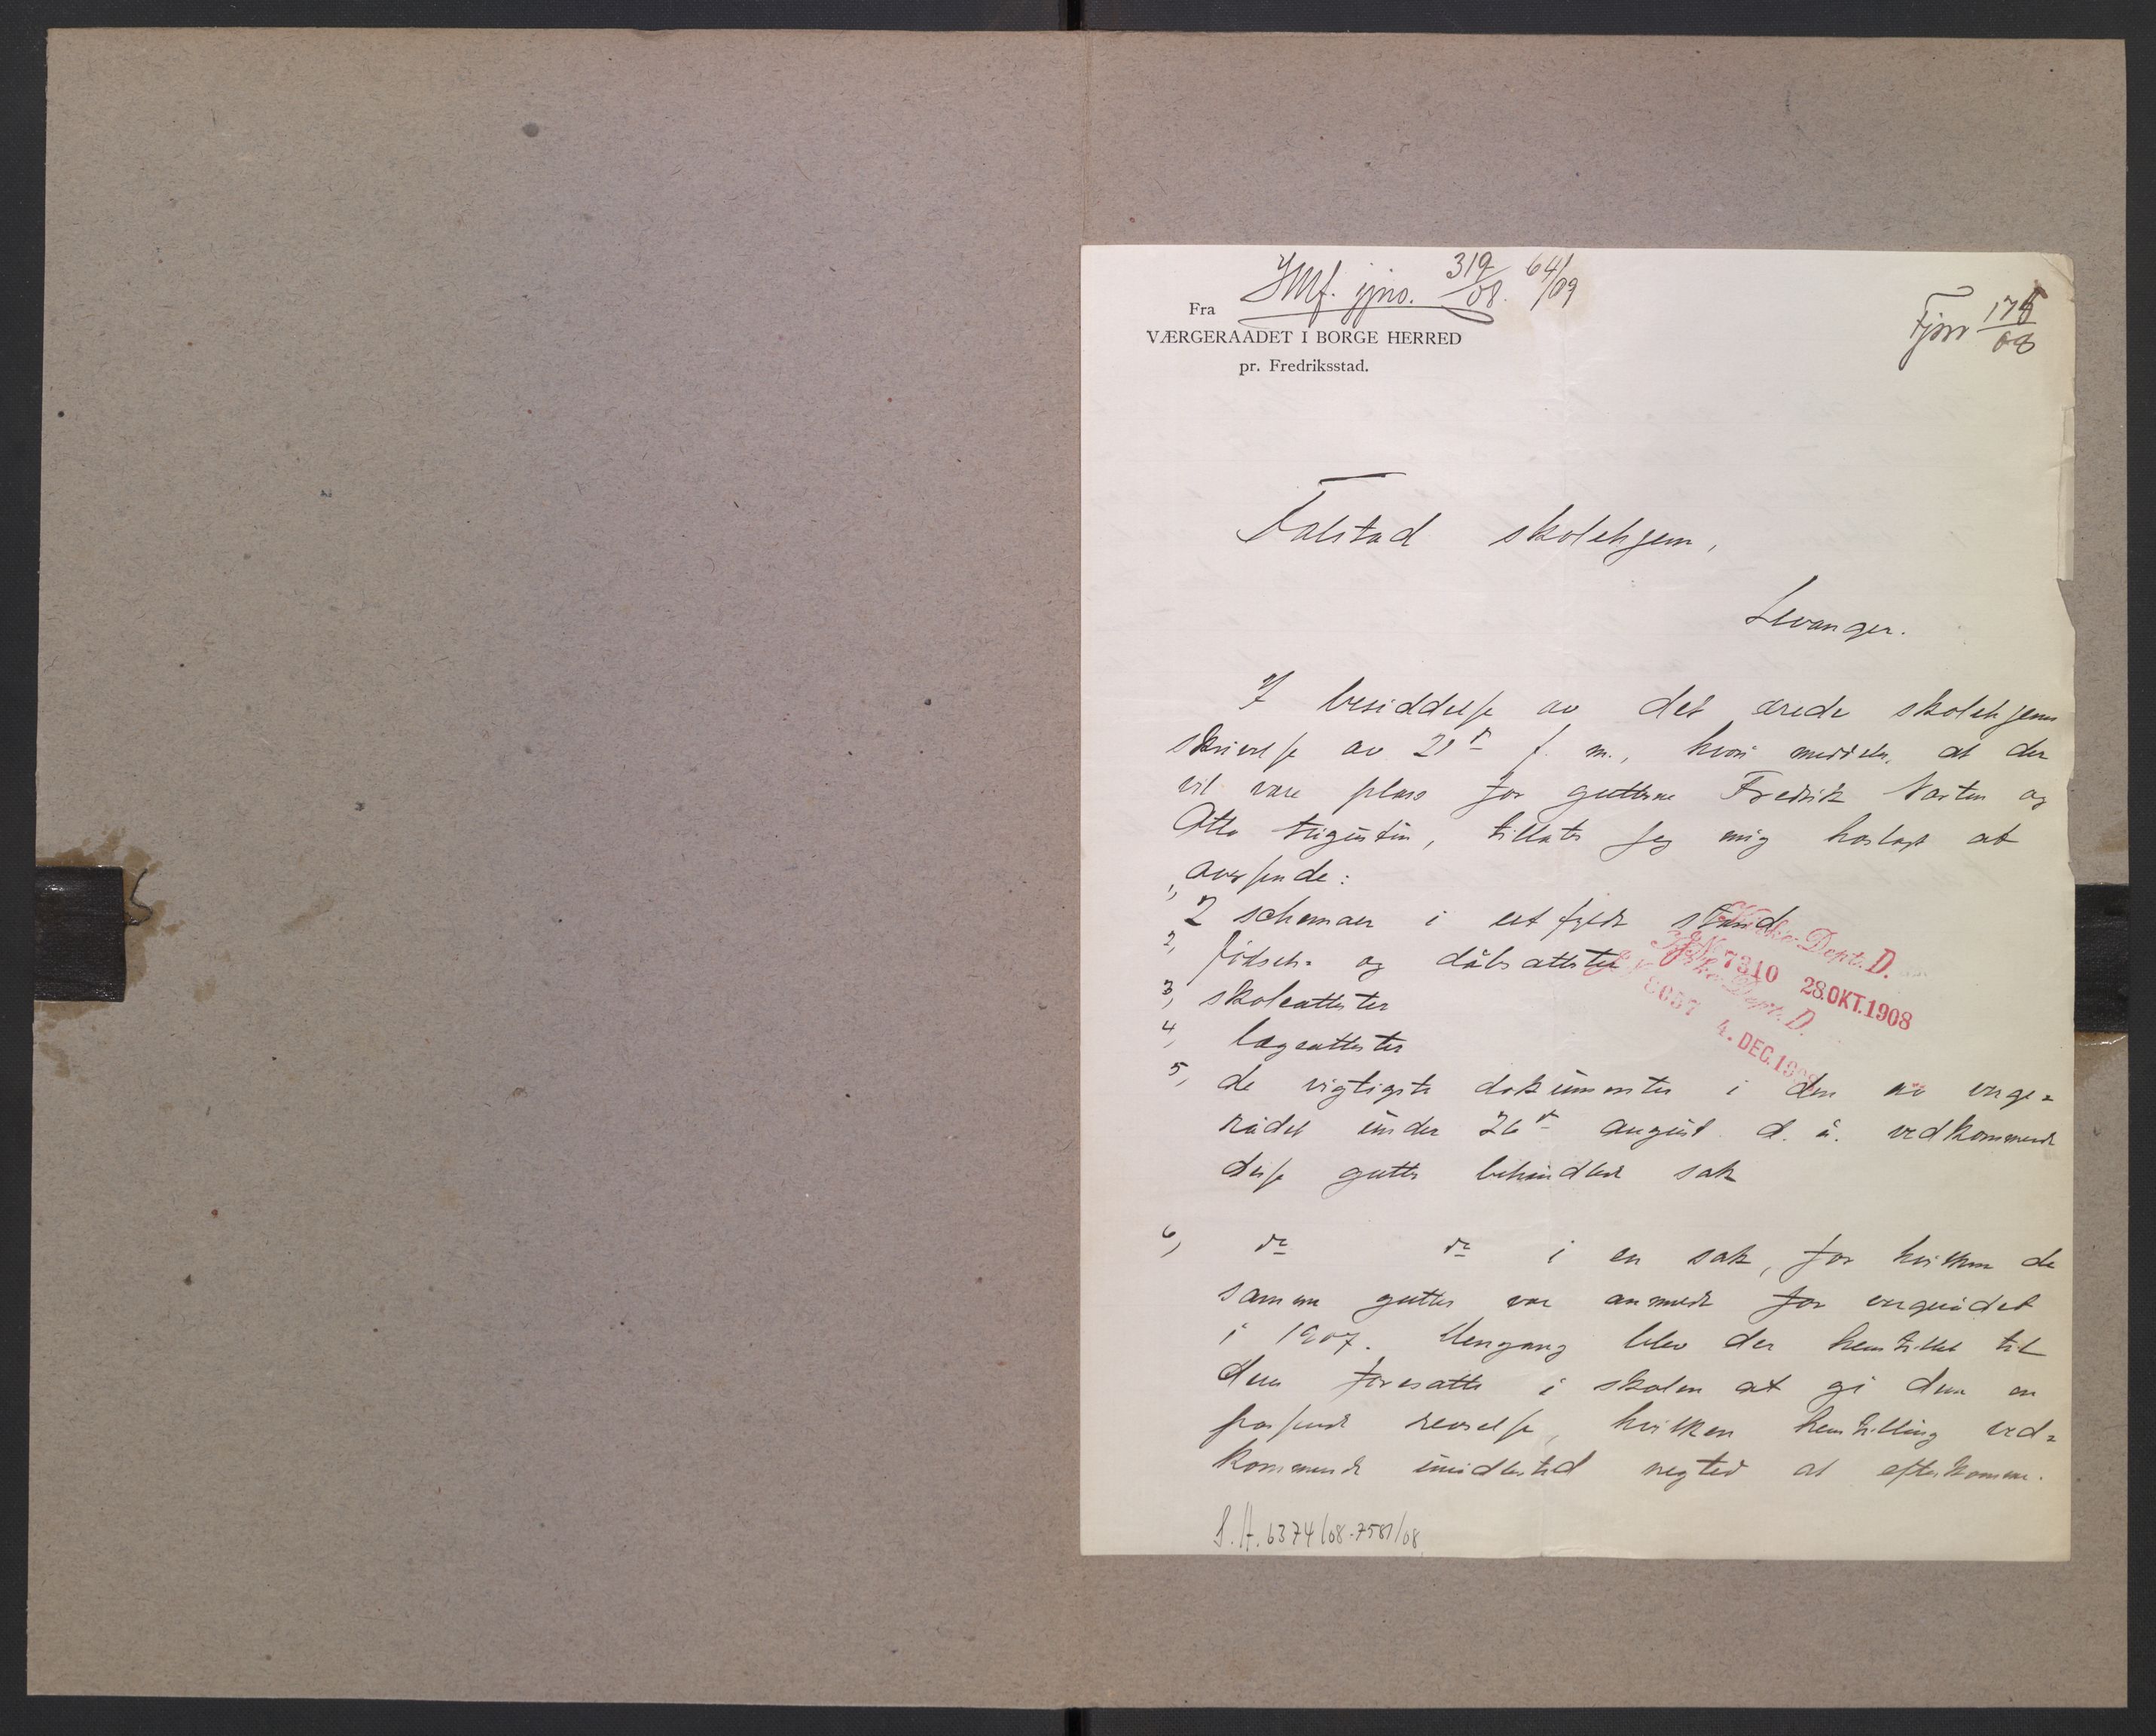 JMf. jjno. 319/08. 64/09
Fjnr 175/08
Fra
VÆRGERAADET I BORGE HERRED
pr. Fredriksstad.
Falstad skolehjem,
Levanger.
I besiddelse av det ærede skolehjems
skrivelse av 21de f. m., hvori meddeles, at der
vil være plass for guttene Fredrik og
Otto Augustin, tillater jeg mig hoslagt at
avsende:
1, 2 schemaer i utfyldt stand
2, fødsels- og dåbsattester
3, skoleattester
4, lægeattester
5, de vigtigste dokumenter i den av verge-
rådet under 26de august d. å. vedkommende
disse gutter behandlede sak
6, do do i en sak, for hvilken de
samme gutter var anmeldt for vergerådet
i 1907. Dengang blev der henstillet til
den foresatte i skolen at gi dem en
passende revselse, hvilken henstilling ved-
kommende imidlertid negted at efterkomme.
Kirke-Dept. D.
JN 7310 28.OKT.1908
Kirke-Dept. D.
JN 8057 4. DEC.1908
S.A. 6374/08-7581/08